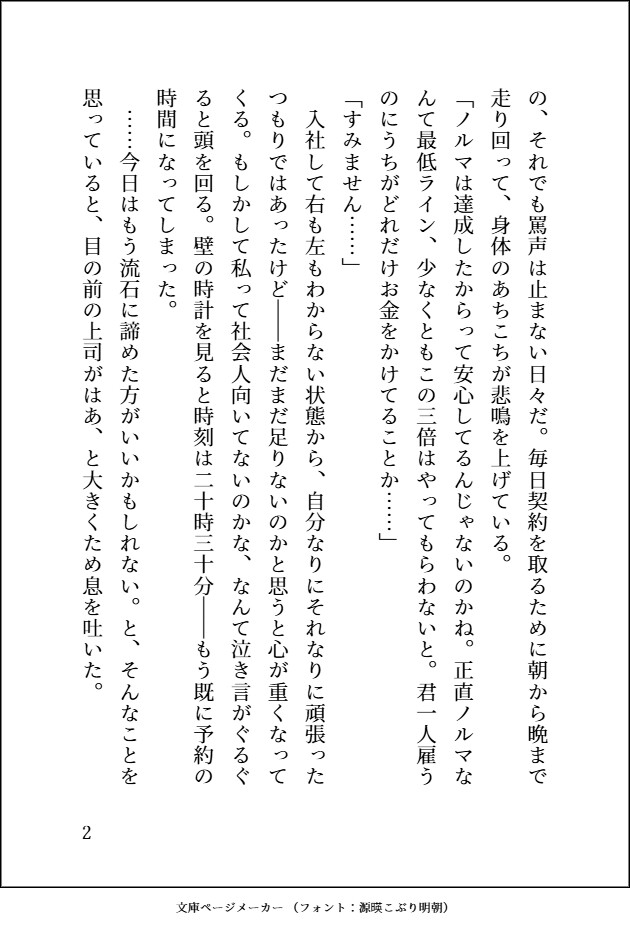 の、それでも罵声は止まない日々だ。毎日契約を取るために朝から晩まで
走り回って、身体のあちこちが悲鳴を上げている。
「ノルマは達成したからって安心してるんじゃないのかね。正直ノルマな
んて最低ライン、少なくともこの三倍はやってもらわないと。君一人雇う
のにうちがどれだけお金をかけてることか……」
「すみません……」
　入社して右も左もわからない状態から、自分なりにそれなりに頑張った
つもりではあったけど――まだまだ足りないのかと思うと心が重くなって
くる。もしかして私って社会人向いてないのかな、なんて泣き言がぐるぐ
ると頭を回る。壁の時計を見ると時刻は二十時三十分――もう既に予約の
時間になってしまった。
　……今日はもう流石に諦めた方がいいかもしれない。と、そんなことを
思っていると、目の前の上司がはあ、と大きくため息を吐いた。
2
文庫ページメーカー（フォント：源暎こぶり明朝）